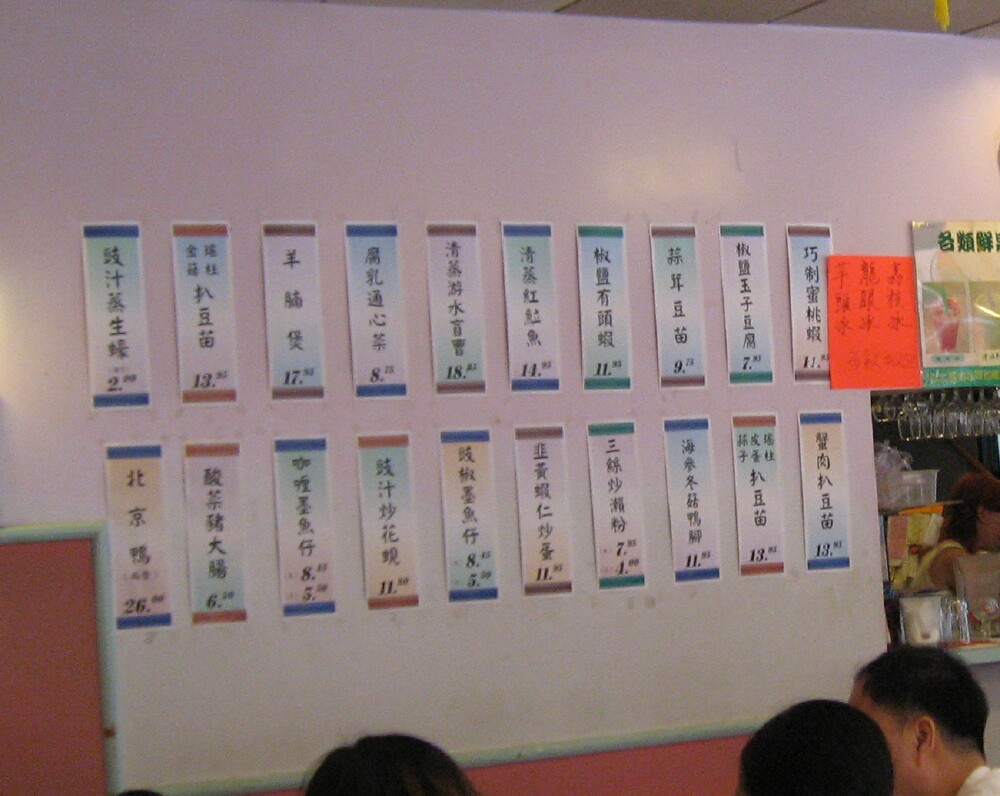 豉汁蒸生蠔
2.00
金菇
瑤柱
扒豆苗
13.95
羊腩煲
17.95
腐乳通心菜
8.75
清蒸游水盲曹
18.95
清蒸紅鮏魚
14.95
椒鹽有頭蝦
11.95
蒜茸豆苗
9.75
椒鹽玉子豆腐
7.95
巧制蜜桃蝦
芋頭冰
龍眼冰
各類鮮
北京鴨
26.00
酸菜豬大腸
6.50
咖喱墨魚仔
8.45
5.50
豉汁炒花蜆
11.50
豉椒墨魚仔
8.45
5.50
韭黃蝦仁炒蛋
11.95
三絲炒瀨粉
7.95
4.00
海參冬菇鴨腳
11.95
蒜子
皮蛋
瑤柱
扒豆苗
13.95
蟹肉扒豆苗
13.95